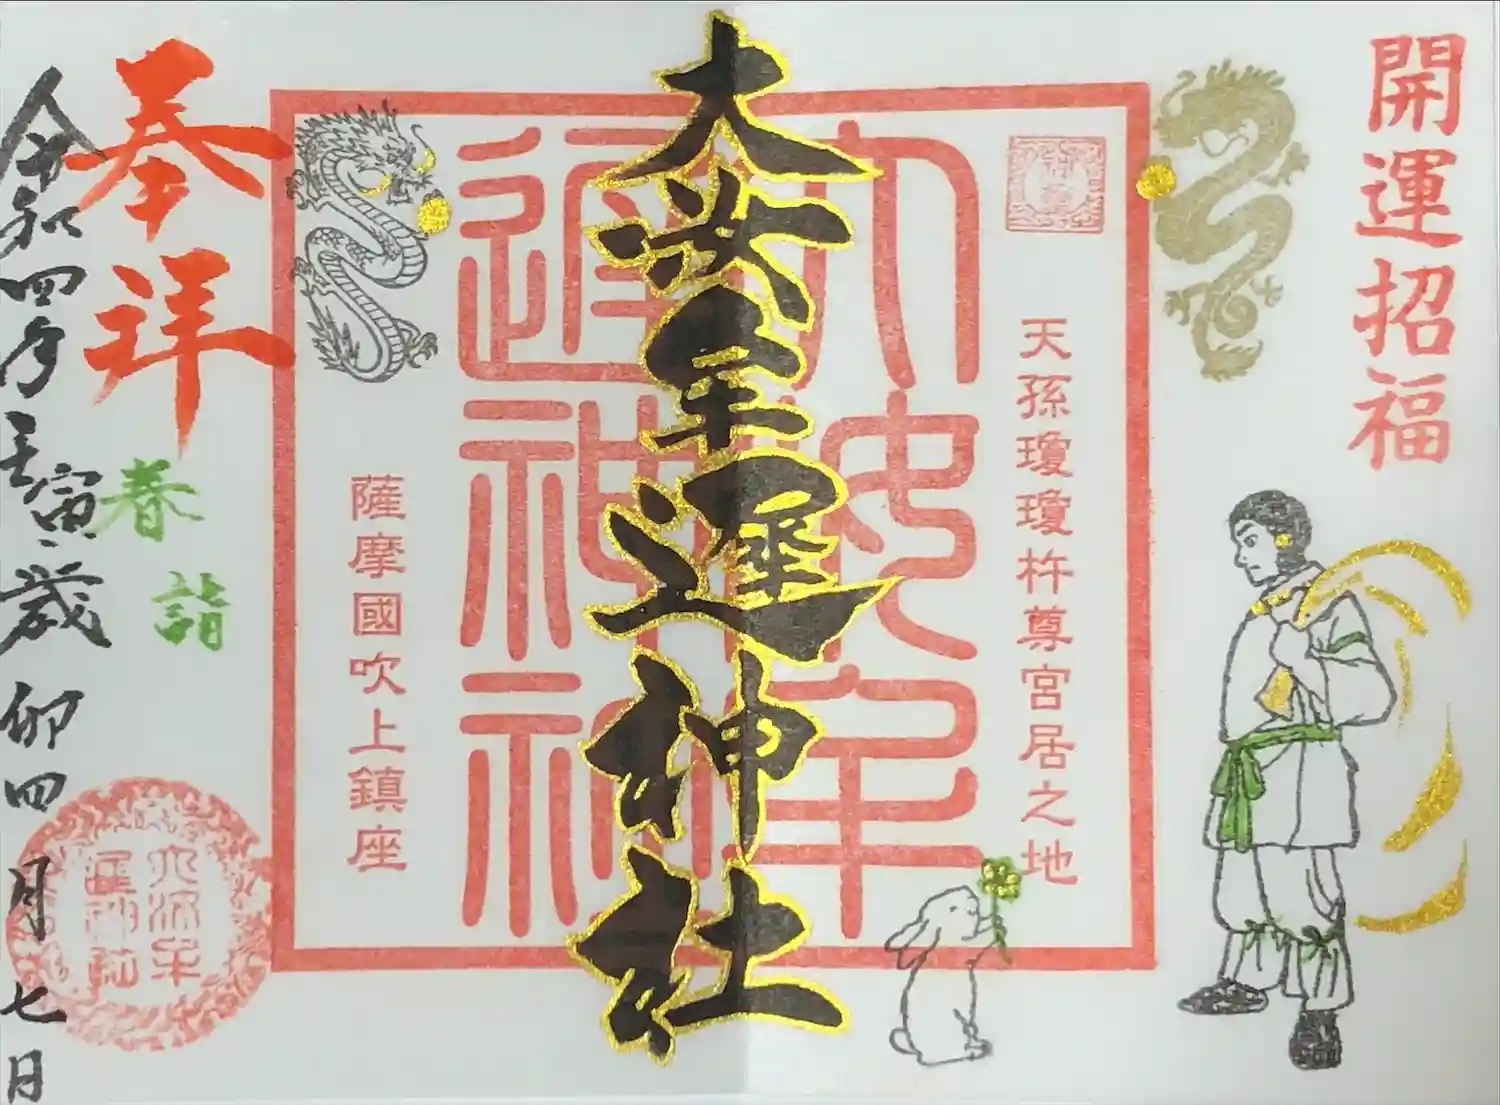 開運招福
天孫瓊瓊杵尊宮居之地
大汝牟遲神社
大汝牟
遲神社
薩摩國吹上鎮座
奉拝
春詣
令和四年壬寅歳卯四月七日
大汝牟
遲神社